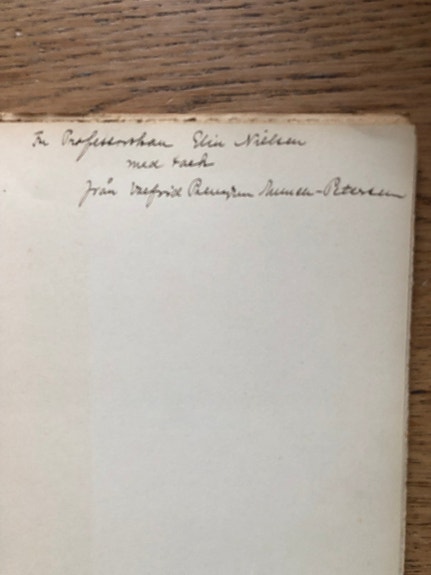 Fru Professorskan Elin Nielsen
med tack
från Valfrid Palmgren Munch-Petersen